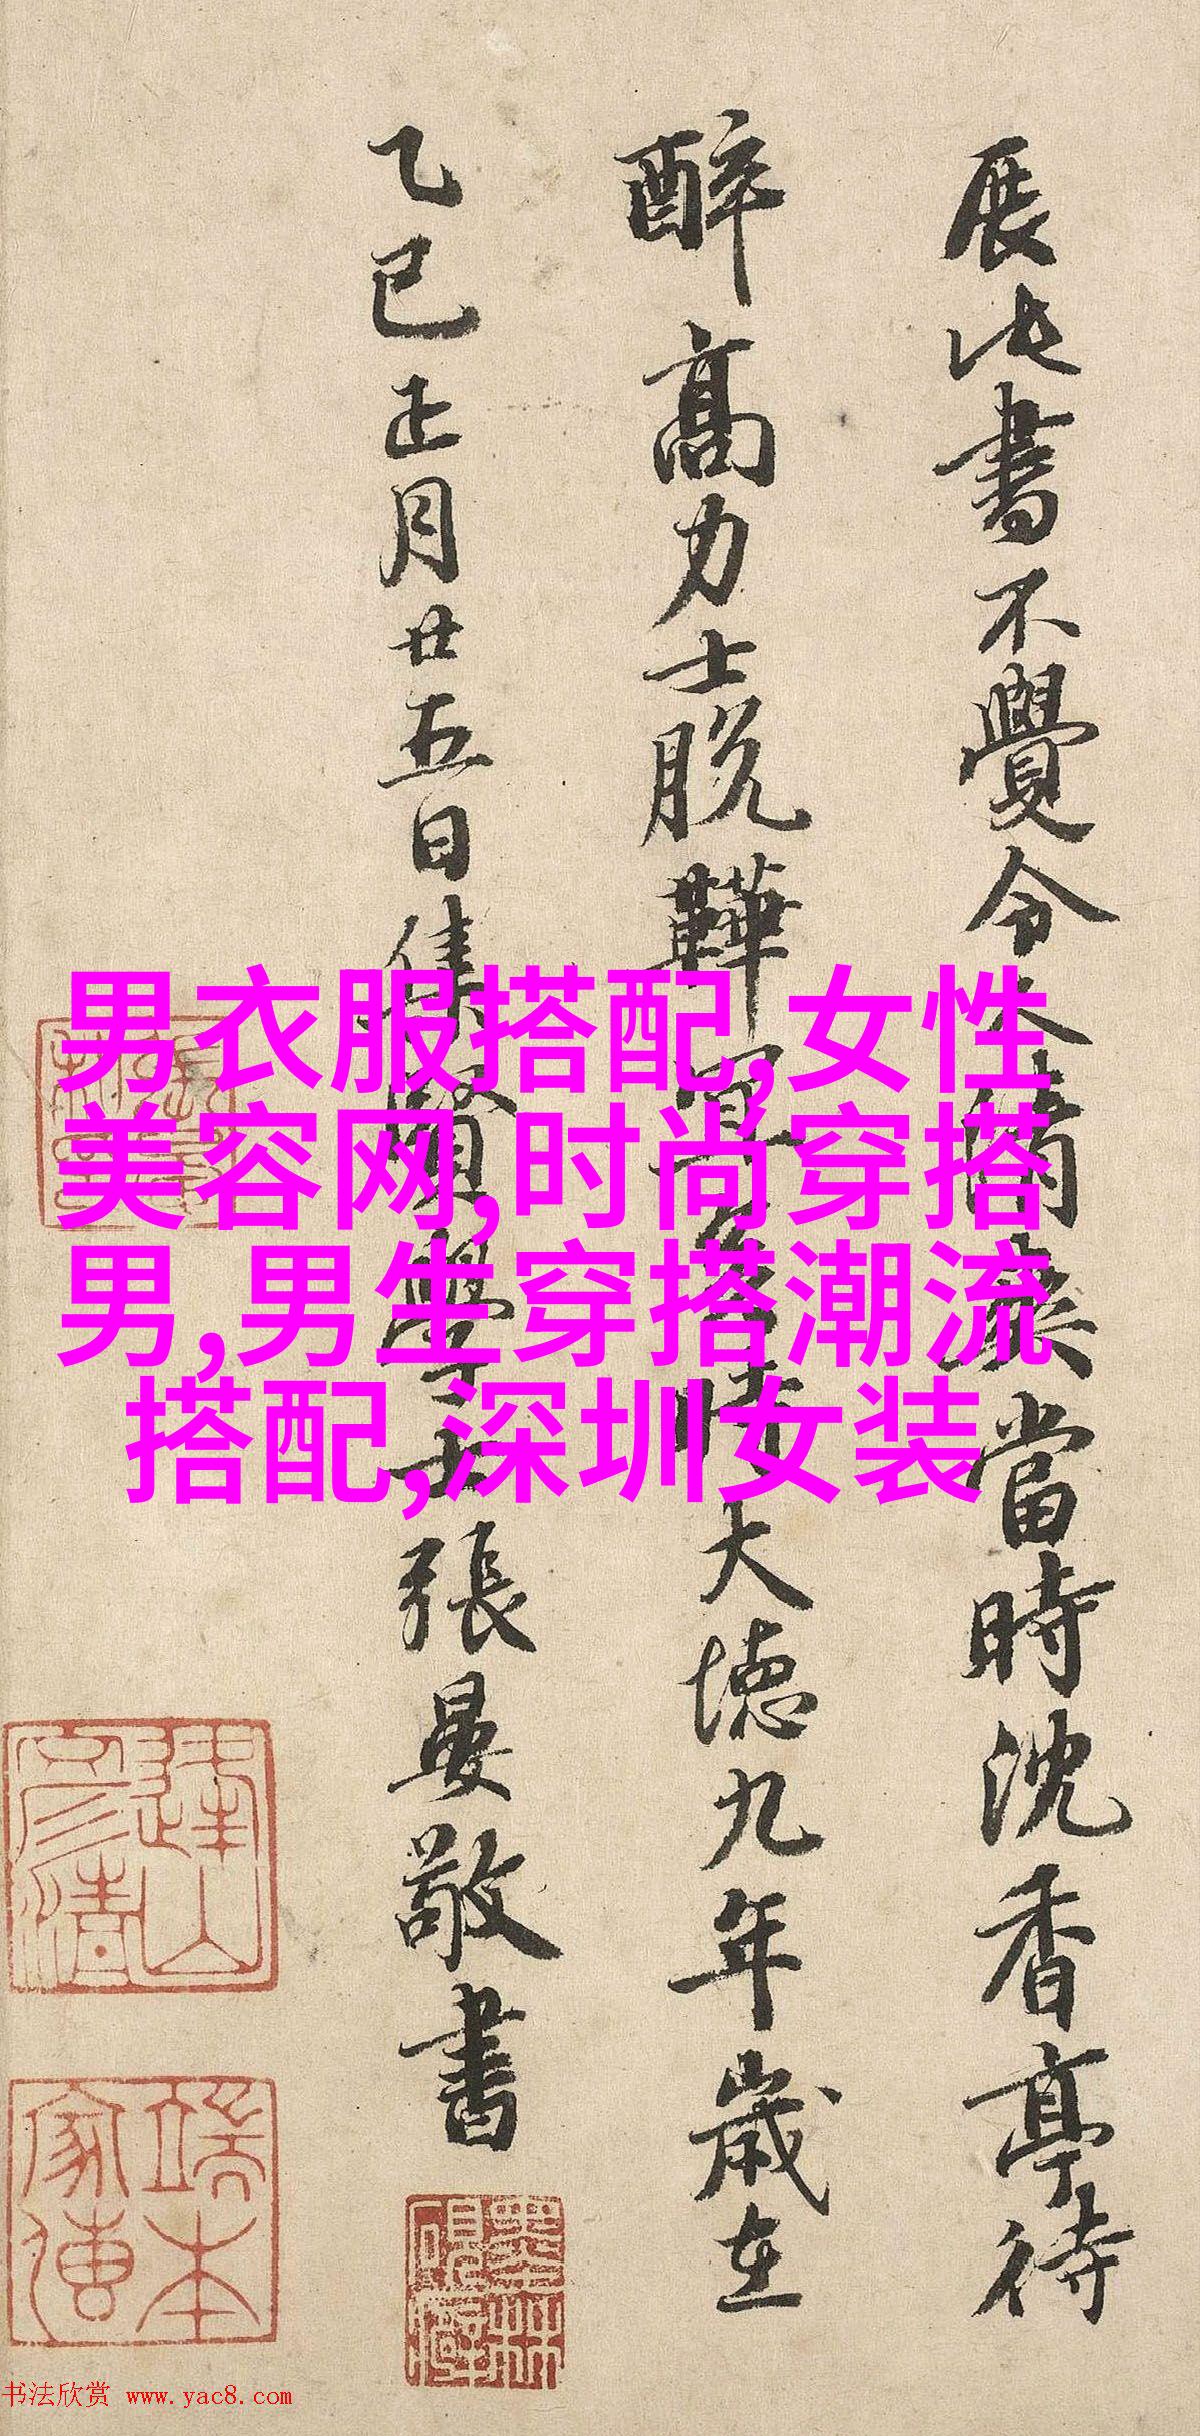 展此書不覺令人爽當時沈香亭待
醉高力士脱鞾時大德九年歲在
乙巳正月廿五日集賢學士張晏敬書
男衣服搭配,女性
美容网,时尚穿搭
男,男生穿搭潮流
搭配,深圳女装
端本
家傳
书法欣赏 www.yac8.com